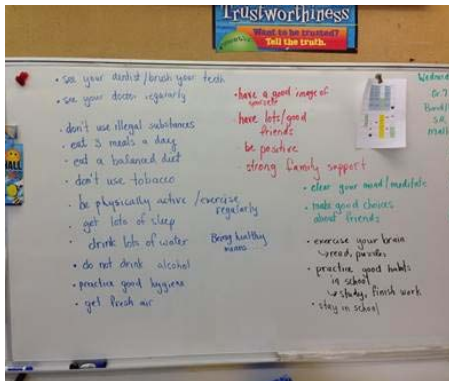 Trustworthiness
Want to be trusted?
Tell the truth.
• see your dentist/brush your teeth
• see your doctor regularly
• don't use illegal substances
• eat 3 meals a day
• eat a balanced diet
• don't use tobacco
• be physically active/exercise
regularly
• get lots of sleep
• drink lots of water
• do not drink alcohol
• practice good hygiene
• get fresh air
Being healthy
means
• have a good image of
yourself
• have lots/good
friends
• be positive
• strong family support
• clear your mind/meditate
• make good choices
about friends
• exercise your brain
↳ read, puzzles
• practice good habits
in school
↳ study, finish work
• stay in school
Gr. 7
S.R.